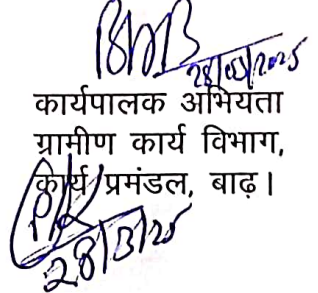 28/03/2025
कार्यपालक अभियता
ग्रामीण कार्य विभाग,
कार्य प्रमंडल, बाढ़।
28/3/25